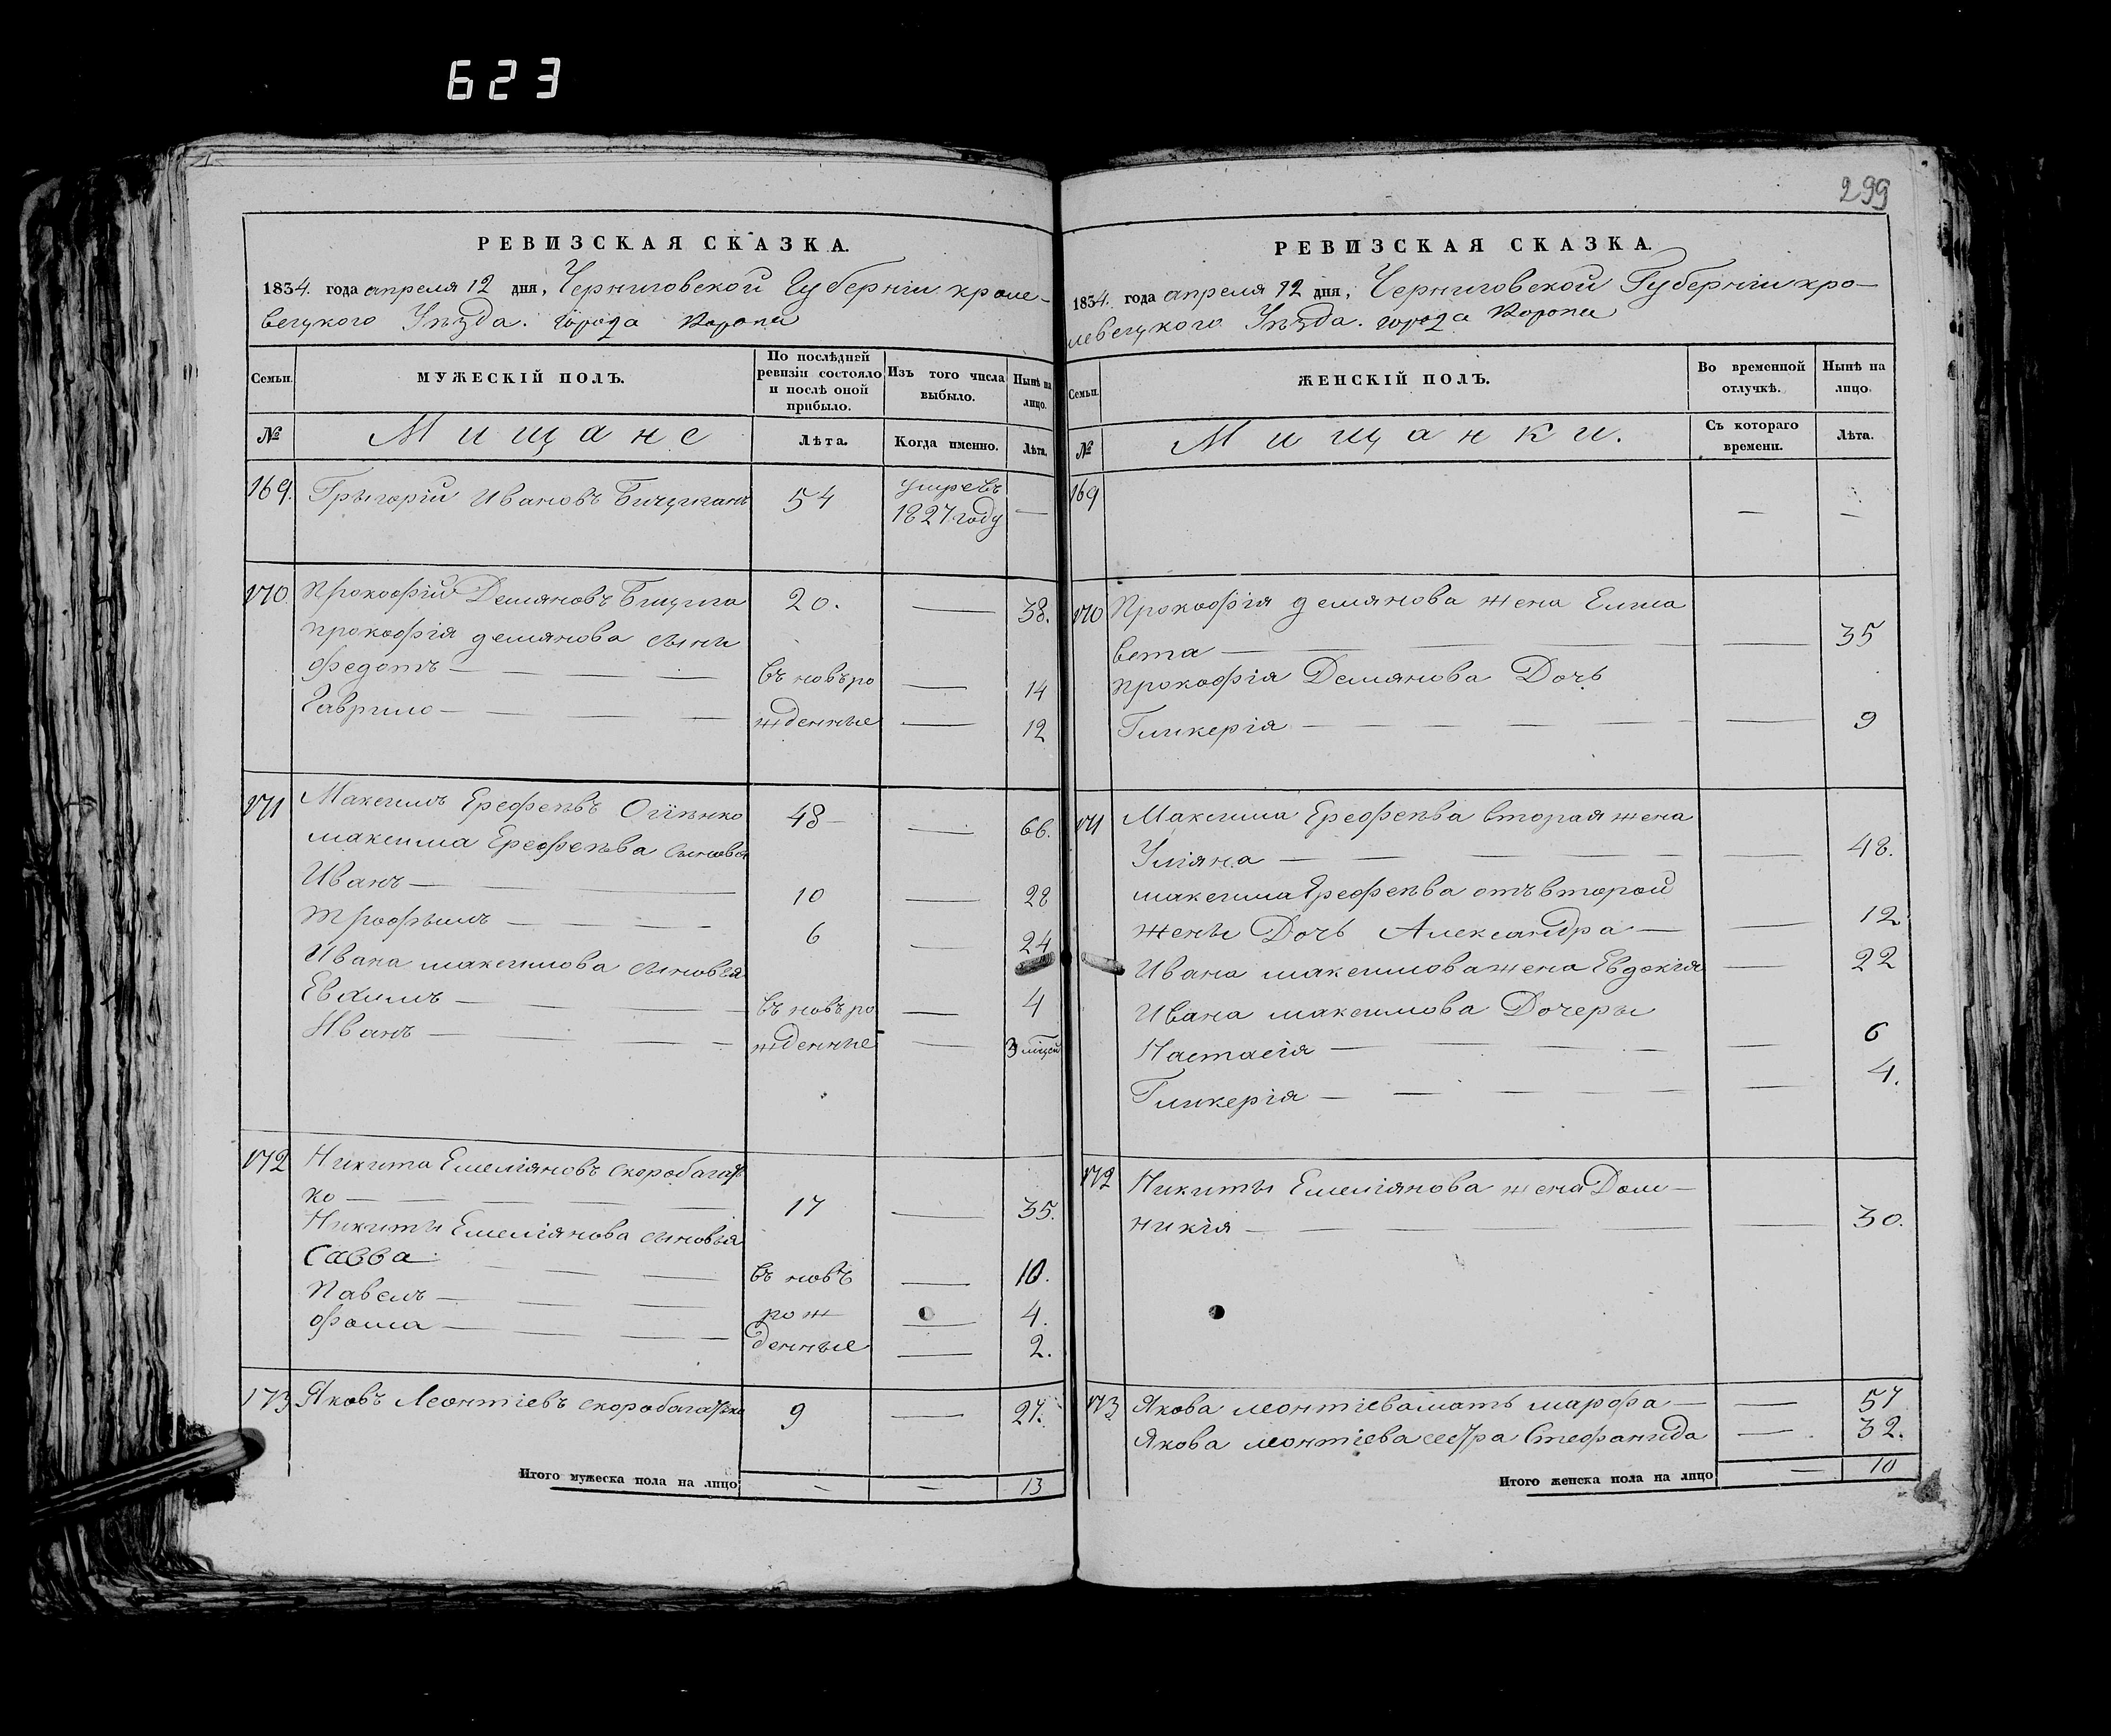 623
299
РЕВИЗСКАЯ СКАЗКА.
1834. года апреля 12 дня, Черниговской Губерніи кроле-
вецкого Уѣзда. города Коропа
Семьи.
МУЖЕСКІЙ ПОЛЪ.
По послѣдней ревизіи состояло и послѣ оной прибыло.
Изъ того числа выбыло.
Нынѣ на лицо.
№
Мищане
Лѣта.
Когда именно.
Лѣта.
169. Грыгорій Ивановъ 54 умре въ 1827 году —
170. Прокофій Демяновъ 20. — 38.
прокофія демянова сыни
федотъ — въ новъ ро — 14
Гаврило — жденные — 12
171 Максимъ Ерофеѣвъ 48 — — 66.
максима Ерофеѣва сыновья
Иванъ — 10 — 28
Трофымъ — 6 — 24
Ивана максимова сыновья
Евхимъ — въ новъ ро — 4
Иванъ — жденные — 3 міцей
172 Никита Емеліяновъ скоробагать
ко — 17 — 35.
Никиты Емеліянова сыновья
Савва — въ новъ — 10.
Павелъ — рож — 4.
фома — денные — 2.
173 Яковъ Леонтіевъ скоробагатько 9 — 27.
Итого мужеска пола на лицо — — 13
РЕВИЗСКАЯ СКАЗКА.
1834. года апреля 12 дня, Черниговской Губерніи кро-
левецкого Уѣзда. города Коропа
Семьи.
ЖЕНСКІЙ ПОЛЪ.
Во временной отлучкѣ.
Нынѣ на лицо.
№
Мищанки.
Съ котораго времени.
Лѣта.
169 — —
170 Прокофія демянова жена Елиса
вета — — 35
прокофія Демянова Дочь
Гликерія — — 9
171 Максима Ерофеѣва вторая жена
Уліяна — — 48.
максима Ерофеѣва отъ второй
жены Дочь Александра — — 12
Ивана максимова жена Евдокія — 22
Ивана максимова Дочеры
Настасія — — 6
Гликерія — — 4.
172 Никиты Емеліянова жена Дом-
никія — — 30.
173 Якова леонтіева мать марфа — — 57
Якова леонтіева сестра Стефанида — 32.
Итого женска пола на лицо — 10